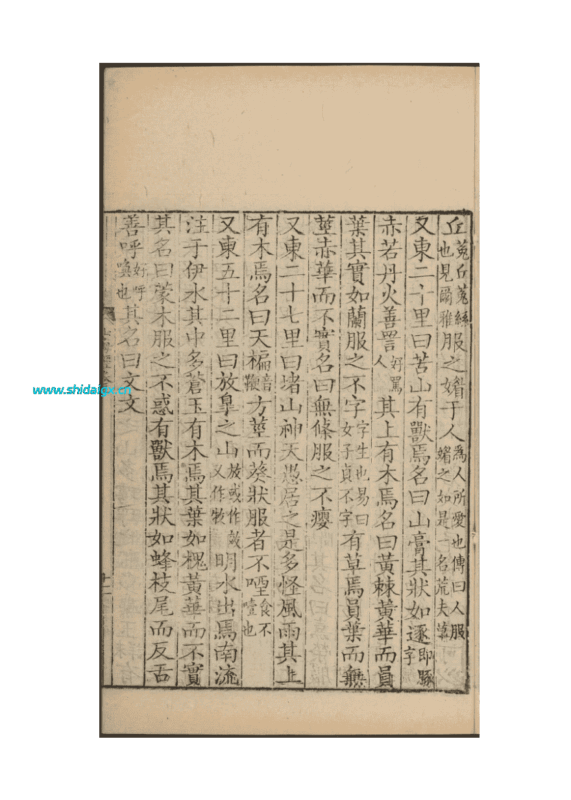 丘菟丘菟絲也見爾雅服之媚于人為人所愛也傳曰人服媚之如是一名荒夫草
又東二十里曰苦山有獸焉名曰山膏其狀如逐即豚字
赤若丹火善詈好罵人其上有木焉名曰黃棘黃華而員
葉其實如蘭服之不字字生也易曰女子貞不字有草焉員葉而無
莖赤華而不實名曰無條服之不癭
又東二十七里曰堵山神天愚居之是多怪風雨其上
有木焉名曰天楄音鞭方莖而葵狀服者不㖶食不噎也
又東五十二里曰放皐之山放或作效又作牧明水出焉南流
注于伊水其中多蒼玉有木焉其葉如槐黃華而不實
其名曰蒙木服之不惑有獸焉其狀如蜂枝尾而反舌
善呼好呼喚也其名曰文文
www.shidaigx.cn